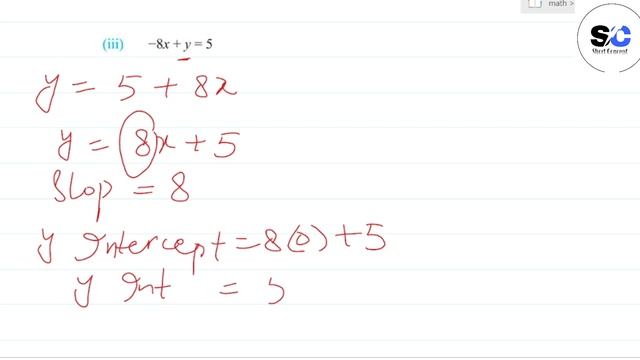 math >
SC
Short Concept
(iii) −8x + y = 5
y = 5 + 8x
y = 8x + 5
Slop = 8
y Intercept = 8(0) + 5
y Int =